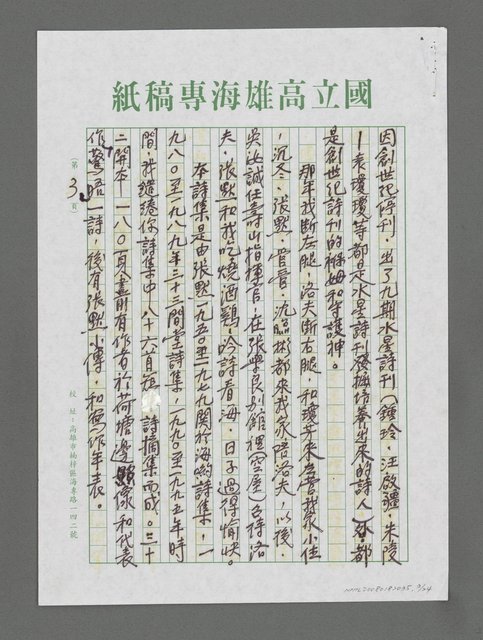 國立高雄海專稿紙
因創世紀停刊，出了九期水星詩刊（鍾玲、汪啟疆、朱陵
—袁瓊瓊等都是水星詩刊發掘培養出來的詩人）張、都
是創世紀詩刊的褓姆和守護神。
那年我斷左腿，洛夫斷右腿，和瓊芳來左營我家小住
，沉冬、張默、管管、沈臨彬都來我家陪洛夫，以後，
吳汝誠任壽山指揮官，在張學良別館裡（空屋）召待洛
夫、張默和我吃燒酒鷄，吟詩看海，日子過得愉快。
本詩集是由張默一九五〇至一九七九關於海的詩集，一
九八〇至一九八九年三十二間堂詩集，一九九〇至一九九五年時
間，我繾綣你詩集中八十六首 詩摘集而成。三十
二開本一八〇頁，書前有作者於荷塘邊照像和代表
作驚晤一詩，後有張默小傳，和寫作年表。
（第3頁）
校址：高雄市楠梓區海專路一四二號